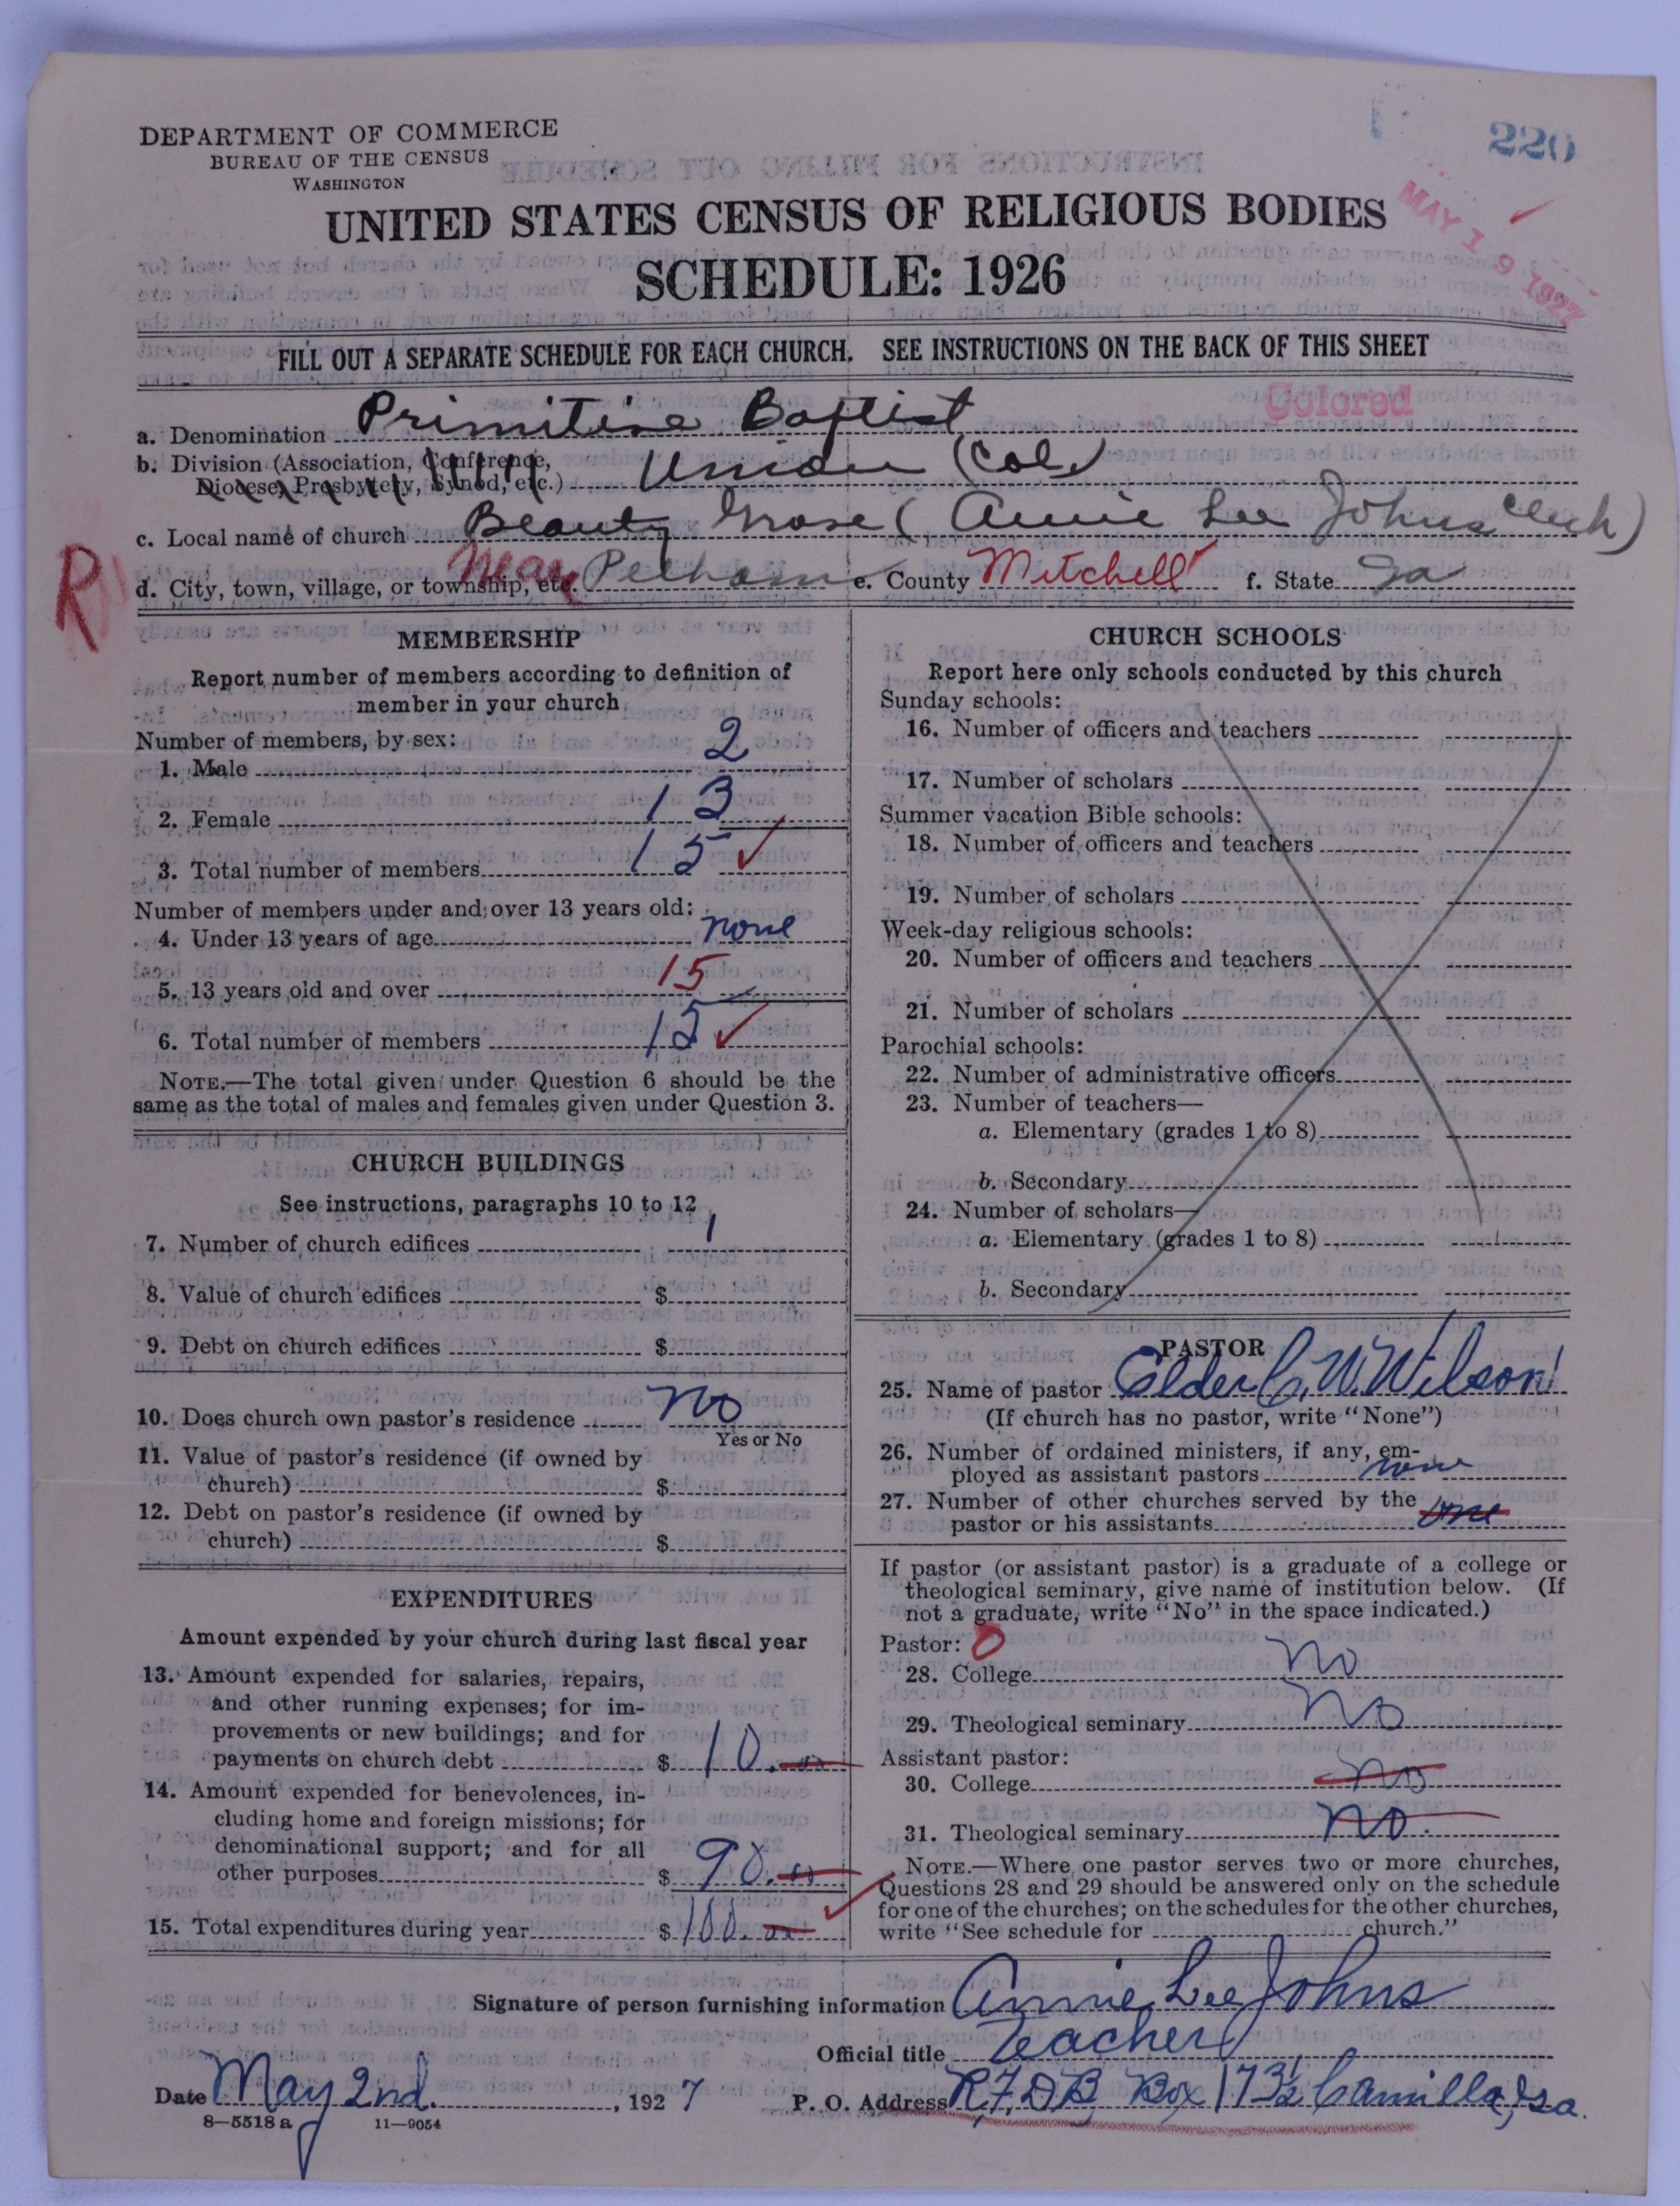 220
DEPARTMENT OF COMMERCE
BUREAU OF THE CENSUS
WASHINGTON
MAY 19 1927
UNITED STATES CENSUS OF RELIGIOUS BODIES
SCHEDULE: 1926
FILL OUT A SEPARATE SCHEDULE FOR EACH CHURCH. SEE INSTRUCTIONS ON THE BACK OF THIS SHEET
Colored
a. Denomination Primitive Baptist
b. Division (Association, Conference,
Diocese, Presbytery, Synod, etc.) Union (Col.)
c. Local name of church Beauty Grove (Annie Lee Johns Clerk)
R
d. City, town, village, or township, etc. Near Pelham e. County Mitchell f. State Ga
MEMBERSHIP
Report number of members according to definition of
member in your church
Number of members, by sex:
1. Male 2
2. Female 13
3. Total number of members 15
Number of members under and over 13 years old:
4. Under 13 years of age none
5. 13 years old and over 15
6. Total number of members 15
NOTE.—The total given under Question 6 should be the
same as the total of males and females given under Question 3.
CHURCH BUILDINGS
See instructions, paragraphs 10 to 12
7. Number of church edifices 1
8. Value of church edifices $
9. Debt on church edifices $
10. Does church own pastor's residence No
Yes or No
11. Value of pastor's residence (if owned by
church) $
12. Debt on pastor's residence (if owned by
church) $
EXPENDITURES
Amount expended by your church during last fiscal year
13. Amount expended for salaries, repairs,
and other running expenses; for im-
provements or new buildings; and for
payments on church debt $ 10.00
14. Amount expended for benevolences, in-
cluding home and foreign missions; for
denominational support; and for all
other purposes $ 90.00
15. Total expenditures during year $ 100.00
CHURCH SCHOOLS
Report here only schools conducted by this church
Sunday schools:
16. Number of officers and teachers
17. Number of scholars
Summer vacation Bible schools:
18. Number of officers and teachers
19. Number of scholars
Week-day religious schools:
20. Number of officers and teachers
21. Number of scholars
Parochial schools:
22. Number of administrative officers
23. Number of teachers—
a. Elementary (grades 1 to 8)
b. Secondary
24. Number of scholars—
a. Elementary (grades 1 to 8)
b. Secondary
PASTOR
25. Name of pastor Elder C. W. Wilson
(If church has no pastor, write "None")
26. Number of ordained ministers, if any, em-
ployed as assistant pastors none
27. Number of other churches served by the
pastor or his assistants one
If pastor (or assistant pastor) is a graduate of a college or
theological seminary, give name of institution below. (If
not a graduate, write "No" in the space indicated.)
Pastor: 0
28. College No
29. Theological seminary No
Assistant pastor:
30. College No
31. Theological seminary No.
NOTE.—Where one pastor serves two or more churches,
Questions 28 and 29 should be answered only on the schedule
for one of the churches; on the schedules for the other churches,
write "See schedule for church."
Signature of person furnishing information Annie Lee Johns
Official title Teacher
Date May 2nd. , 1927 P. O. Address R.F.D.B. Box 173½ Camilla, Ga.
8—5518 a 11—9054